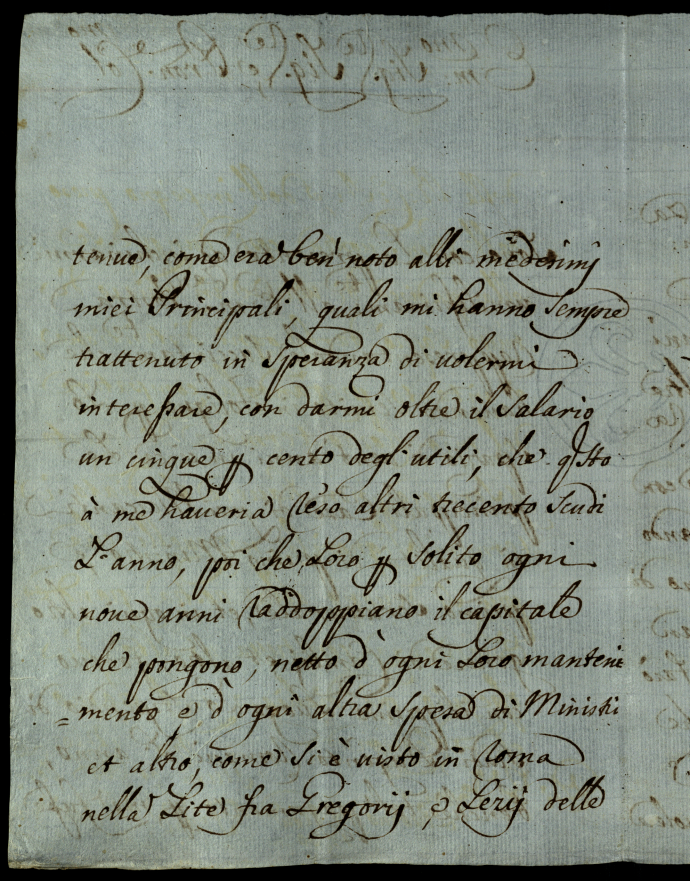 tenue, come era ben noto alli medesimj
miei Principali, quali mi hanno sempre
trattenuto in speranza di uolermi
interessare, con darmi oltre il salario
un cinque p cento degl'utili, che qsto
à me haueria reso altri trecento scudi
L'anno, poi che Loro p solito ogni
noue anni raddoppiano il capitale
che pongono, netto d'ogni Loro manteni
=mento e d'ogni altra spesa di Ministri
et altro, come si è visto in Roma
nella Lite fra Gregorij e Lerij delle